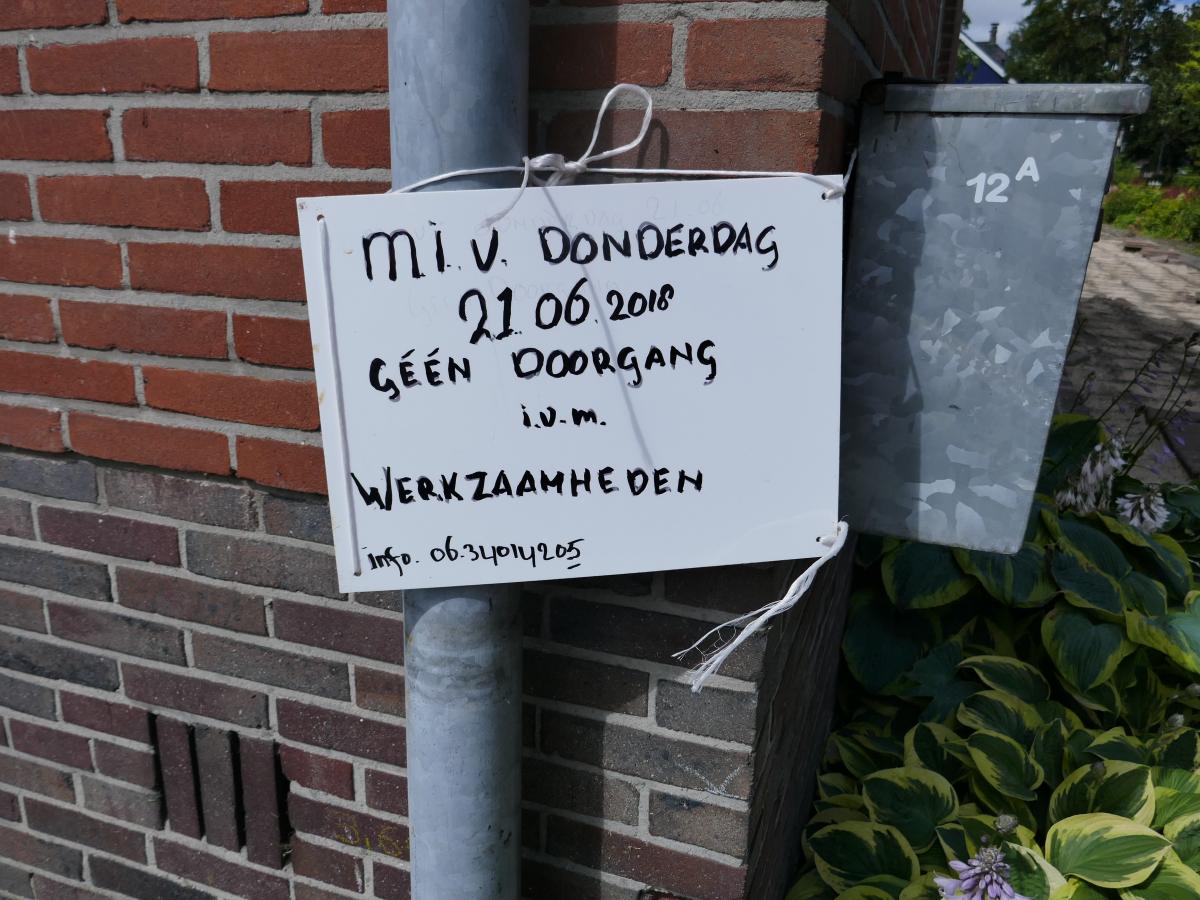 M.I.V. DONDERDAG
21.06.2018
GÉÉN DOORGANG
i.v.m.
WERKZAAMHEDEN
info. 06.34014205
12A